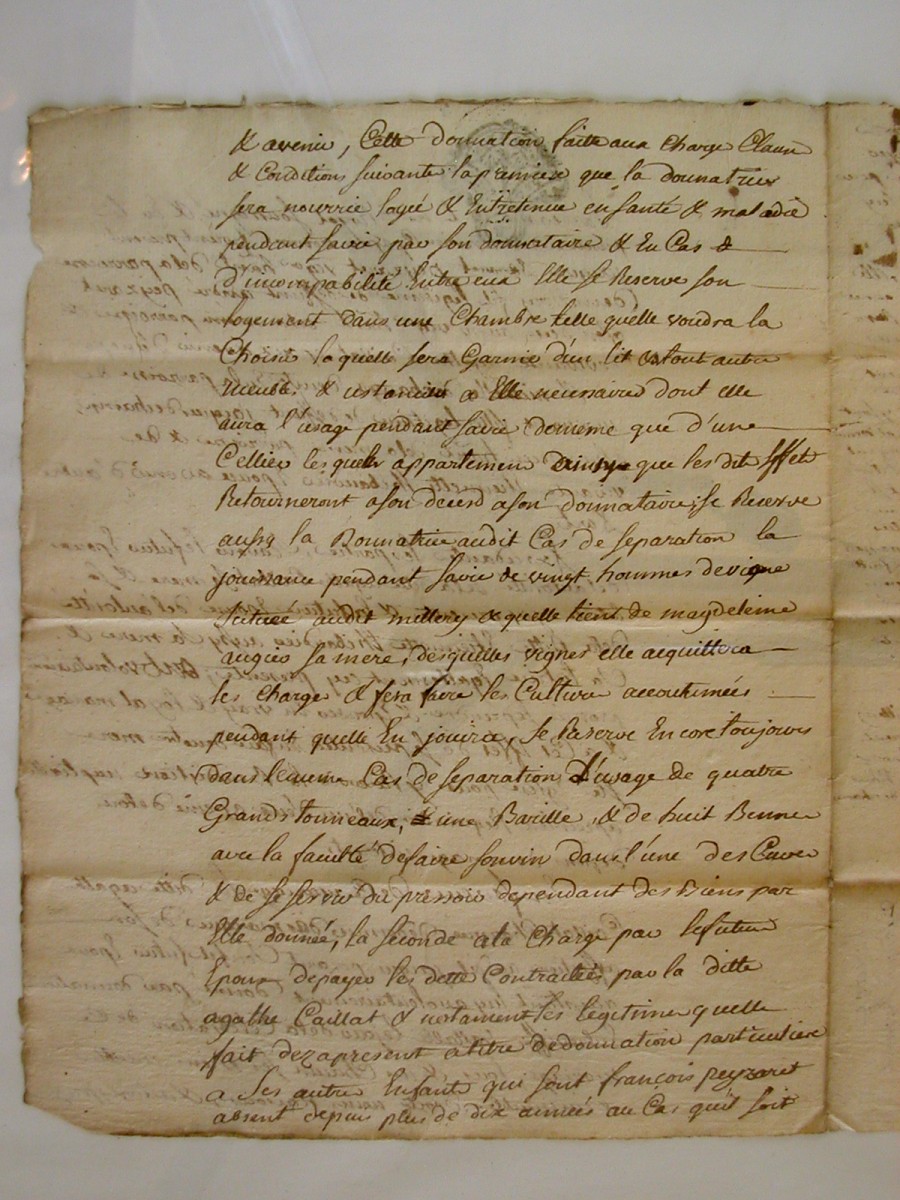 & avenir, Cette donnation faite aux charge Clause
& Conditions suivante la premiere que la donnatrice
sera nourrie logée & Entretenue en santé & maladie
pendant sa vie par son donnataire & En Cas
d'incompabilité Entre eux Elle se Reserve son
logement dans une Chambre telle quelle voudra la
Choisir laquelle sera Garnie d'un lit & tout autre
meuble & ustancils a Elle necessaire dont elle
aura l'usage pendant sa vie de meme que d'une
Cellier lesquels appartement que les dit Effets
Retourneront a son deced a son donnataire, se Reserve
aussy la Donnatrice audit Cas de separation la
jouissance pendant sa vie de vingt hommes de vigne
scituée audit millery & quelle tient de magdeleine
sa mere, desquelles vignes elle acquittera
les charge & fera faire les Culture accoutumées
pendant quelle En jouira, se Reserve Encore toujours
dans le meme Cas de separation L'usage de quatre
Grands tonneaux, une Barille, & de huit Benne
avec la faculté de faire son vin dans l'une des Cuves
& de se servir du pressoir dependant des Biens par
Elle donnée, la seconde a la charge par le futur
Epoux de payer les dette Contractées par la ditte
agathe Caillat & notament les legitime quelle
fait dez a present a titre de donnation particuliere
a Ses autre Enfants qui sont françois peyzaret
absent depuis plus de dix années au Cas qu'il soit